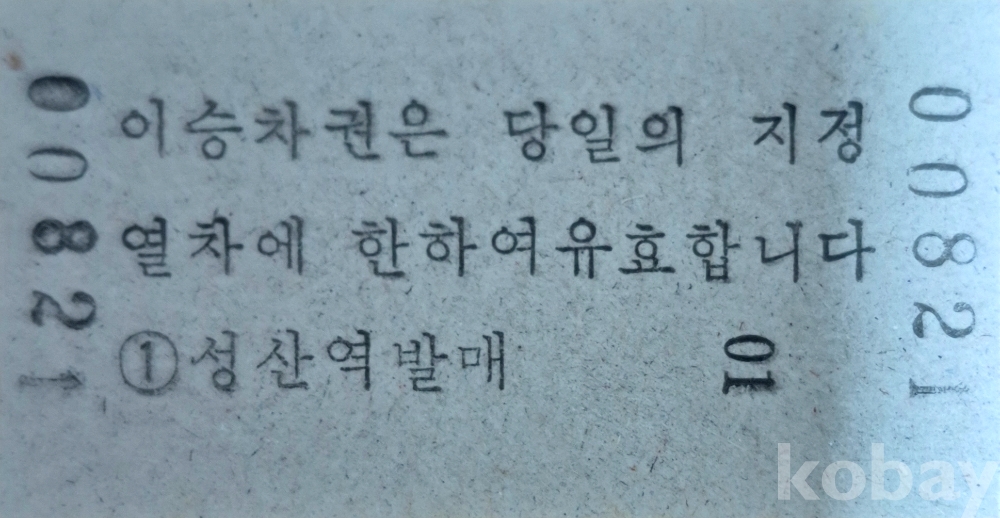 이승차권은 당일의 지정
열차에 한하여유효합니다
①성산역발매 01
00821
00821
kobay